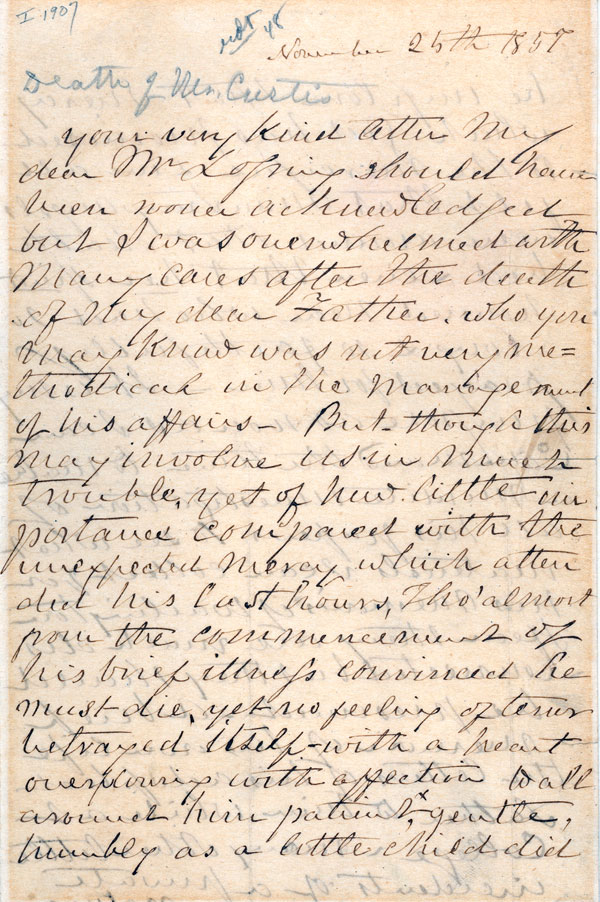 I 1907
November 25th 1857
Death of Mr. Custis
your very kind letter my
dear Mr Lossing should have
been sooner acknowledged
but I was overwhelmed with
many cares after the death
of my dear Father, who you
may know was not very me=
thodical in the management
of his affairs – But though this
may involve us in much
trouble, yet of how little im
portance compared with the
unexpected mercy which atten
ded his last hours, Tho' almost
from the commencement of
his brief illness convinced he
must die, yet no feeling of terror
betrayed itself – with a heart
overflowing with affection to all
around him patient, & gentle,
humbly as a little child did